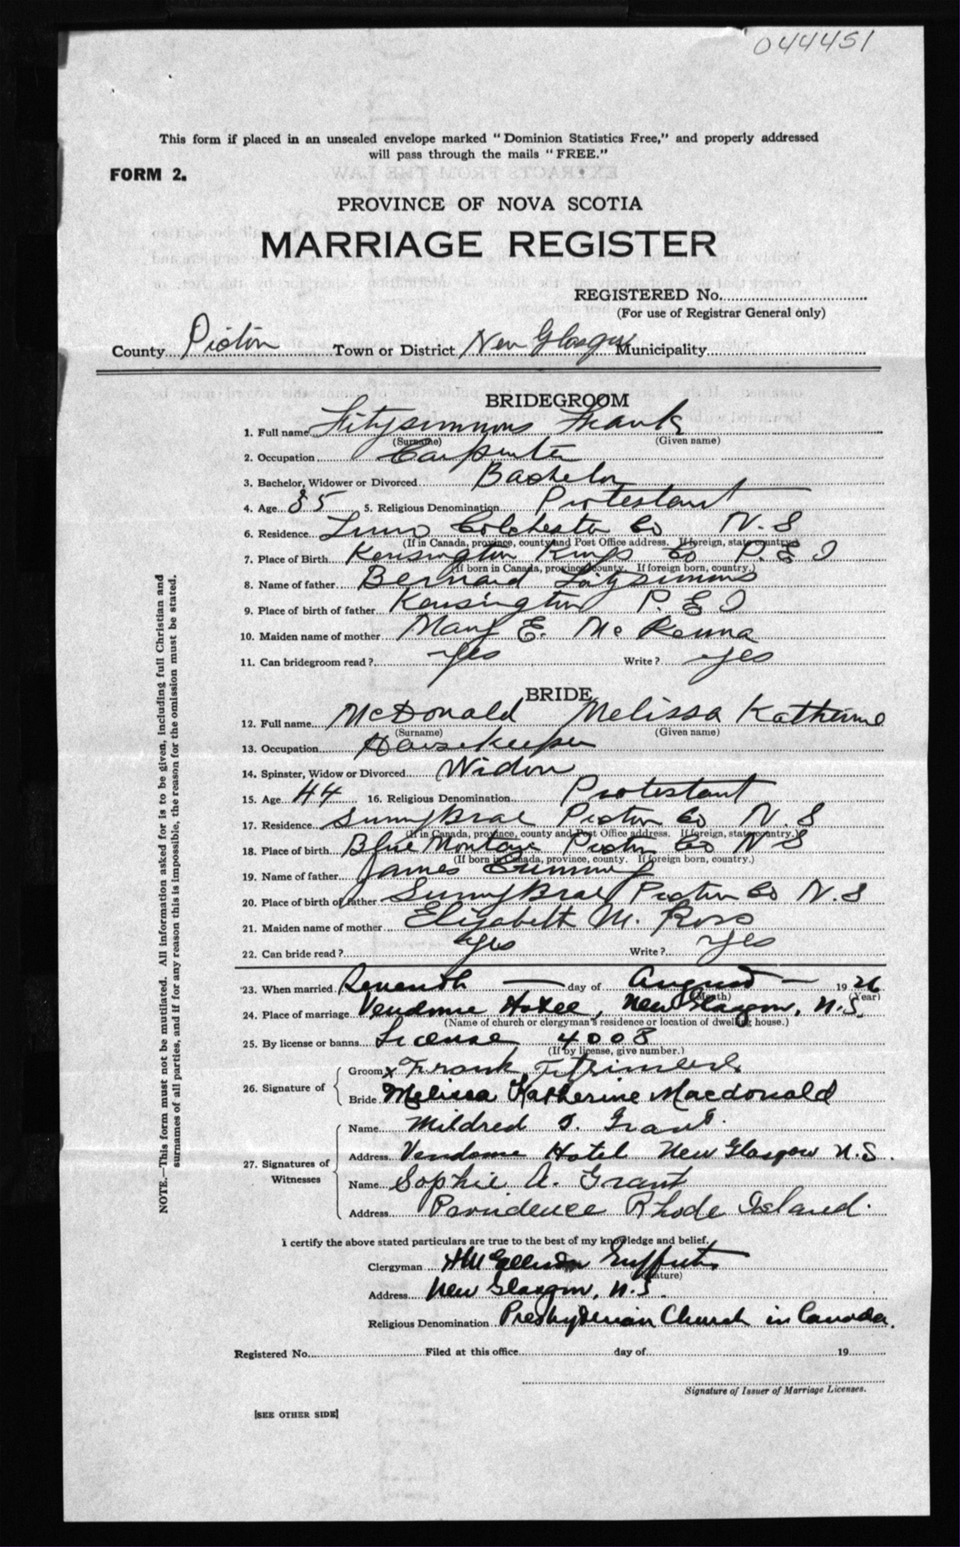 044451
This form if placed in an unsealed envelope marked "Dominion Statistics Free," and properly addressed
will pass through the mails "FREE."
FORM 2.
PROVINCE OF NOVA SCOTIA
MARRIAGE REGISTER
REGISTERED No.
(For use of Registrar General only)
County Pictou Town or District New Glasgow Municipality
BRIDEGROOM
1. Full name Fitzsimmons Frank
(Surname) (Given name)
2. Occupation Carpenter
3. Bachelor, Widower or Divorced Bachelor
4. Age 35 5. Religious Denomination Protestant
6. Residence Colchester Co N.S
(If in Canada, province, county and Post Office address. If foreign, state country.)
7. Place of Birth Kensington Kings Co P.E I
(If born in Canada, province, county. If foreign born, country.)
8. Name of father Bernard Fitzsimmons
9. Place of birth of father Kensington P.E I
10. Maiden name of mother Mary E. McKenna
11. Can bridegroom read? Yes Write? Yes
BRIDE
12. Full name McDonald Melissa Katherine
(Surname) (Given name)
13. Occupation Housekeeper
14. Spinster, Widow or Divorced Widow
15. Age 44 16. Religious Denomination Protestant
17. Residence SunnyBrae Pictou Co N.S
(If in Canada, province, county and Post Office address. If foreign, state country.)
18. Place of birth Blue Montain Pictou Co N S
(If born in Canada, province, county. If foreign born, country.)
19. Name of father James
20. Place of birth of father SunnyBrae Pictou Co N.S
21. Maiden name of mother Elizabeth M. Ross
22. Can bride read? Yes Write? Yes
23. When married Seventh day of August 1926
(Month) (Year)
24. Place of marriage Vendome Hotel, New Glasgow, N.S.
(Name of church or clergyman's residence or location of dwelling house.)
25. By license or banns License 4008
(If by license, give number.)
26. Signature of
Groom x Frank
Bride Melissa Katherine Macdonald
27. Signatures of
Witnesses
Name Mildred Grant
Address Vendome Hotel New Glasgow N.S.
Name Sophie A. Grant
Address Providence Rhode Island.
I certify the above stated particulars are true to the best of my knowledge and belief.
Clergyman
(Signature)
Address New Glasgow, N.S.
Religious Denomination Presbyterian Church in Canada.
Registered No. Filed at this office day of 19
Signature of Issuer of Marriage Licenses.
[SEE OTHER SIDE]
NOTE.—This form must not be mutilated. All information asked for is to be given, including full Christian and
surnames of all parties, and if for any reason this is impossible, the reason for the omission must be stated.